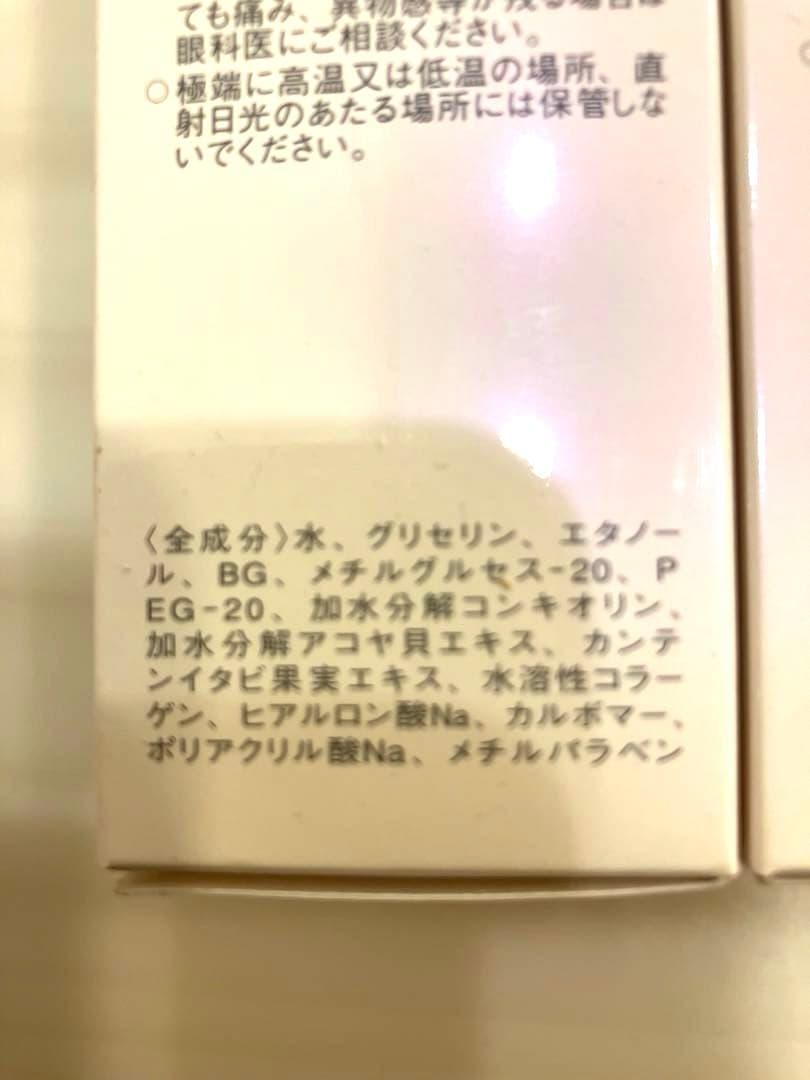 ても痛み、異物感等が残る場合は
眼科医にご相談ください。
○極端に高温又は低温の場所、直
射日光のあたる場所には保管しな
いでください。
〈全成分〉水、グリセリン、エタノー
ル、BG、メチルグルセス-20、P
EG-20、加水分解コンキオリン、
加水分解アコヤ貝エキス、カンテ
ンイタビ果実エキス、水溶性コラー
ゲン、ヒアルロン酸Na、カルボマー、
ポリアクリル酸Na、メチルパラベン